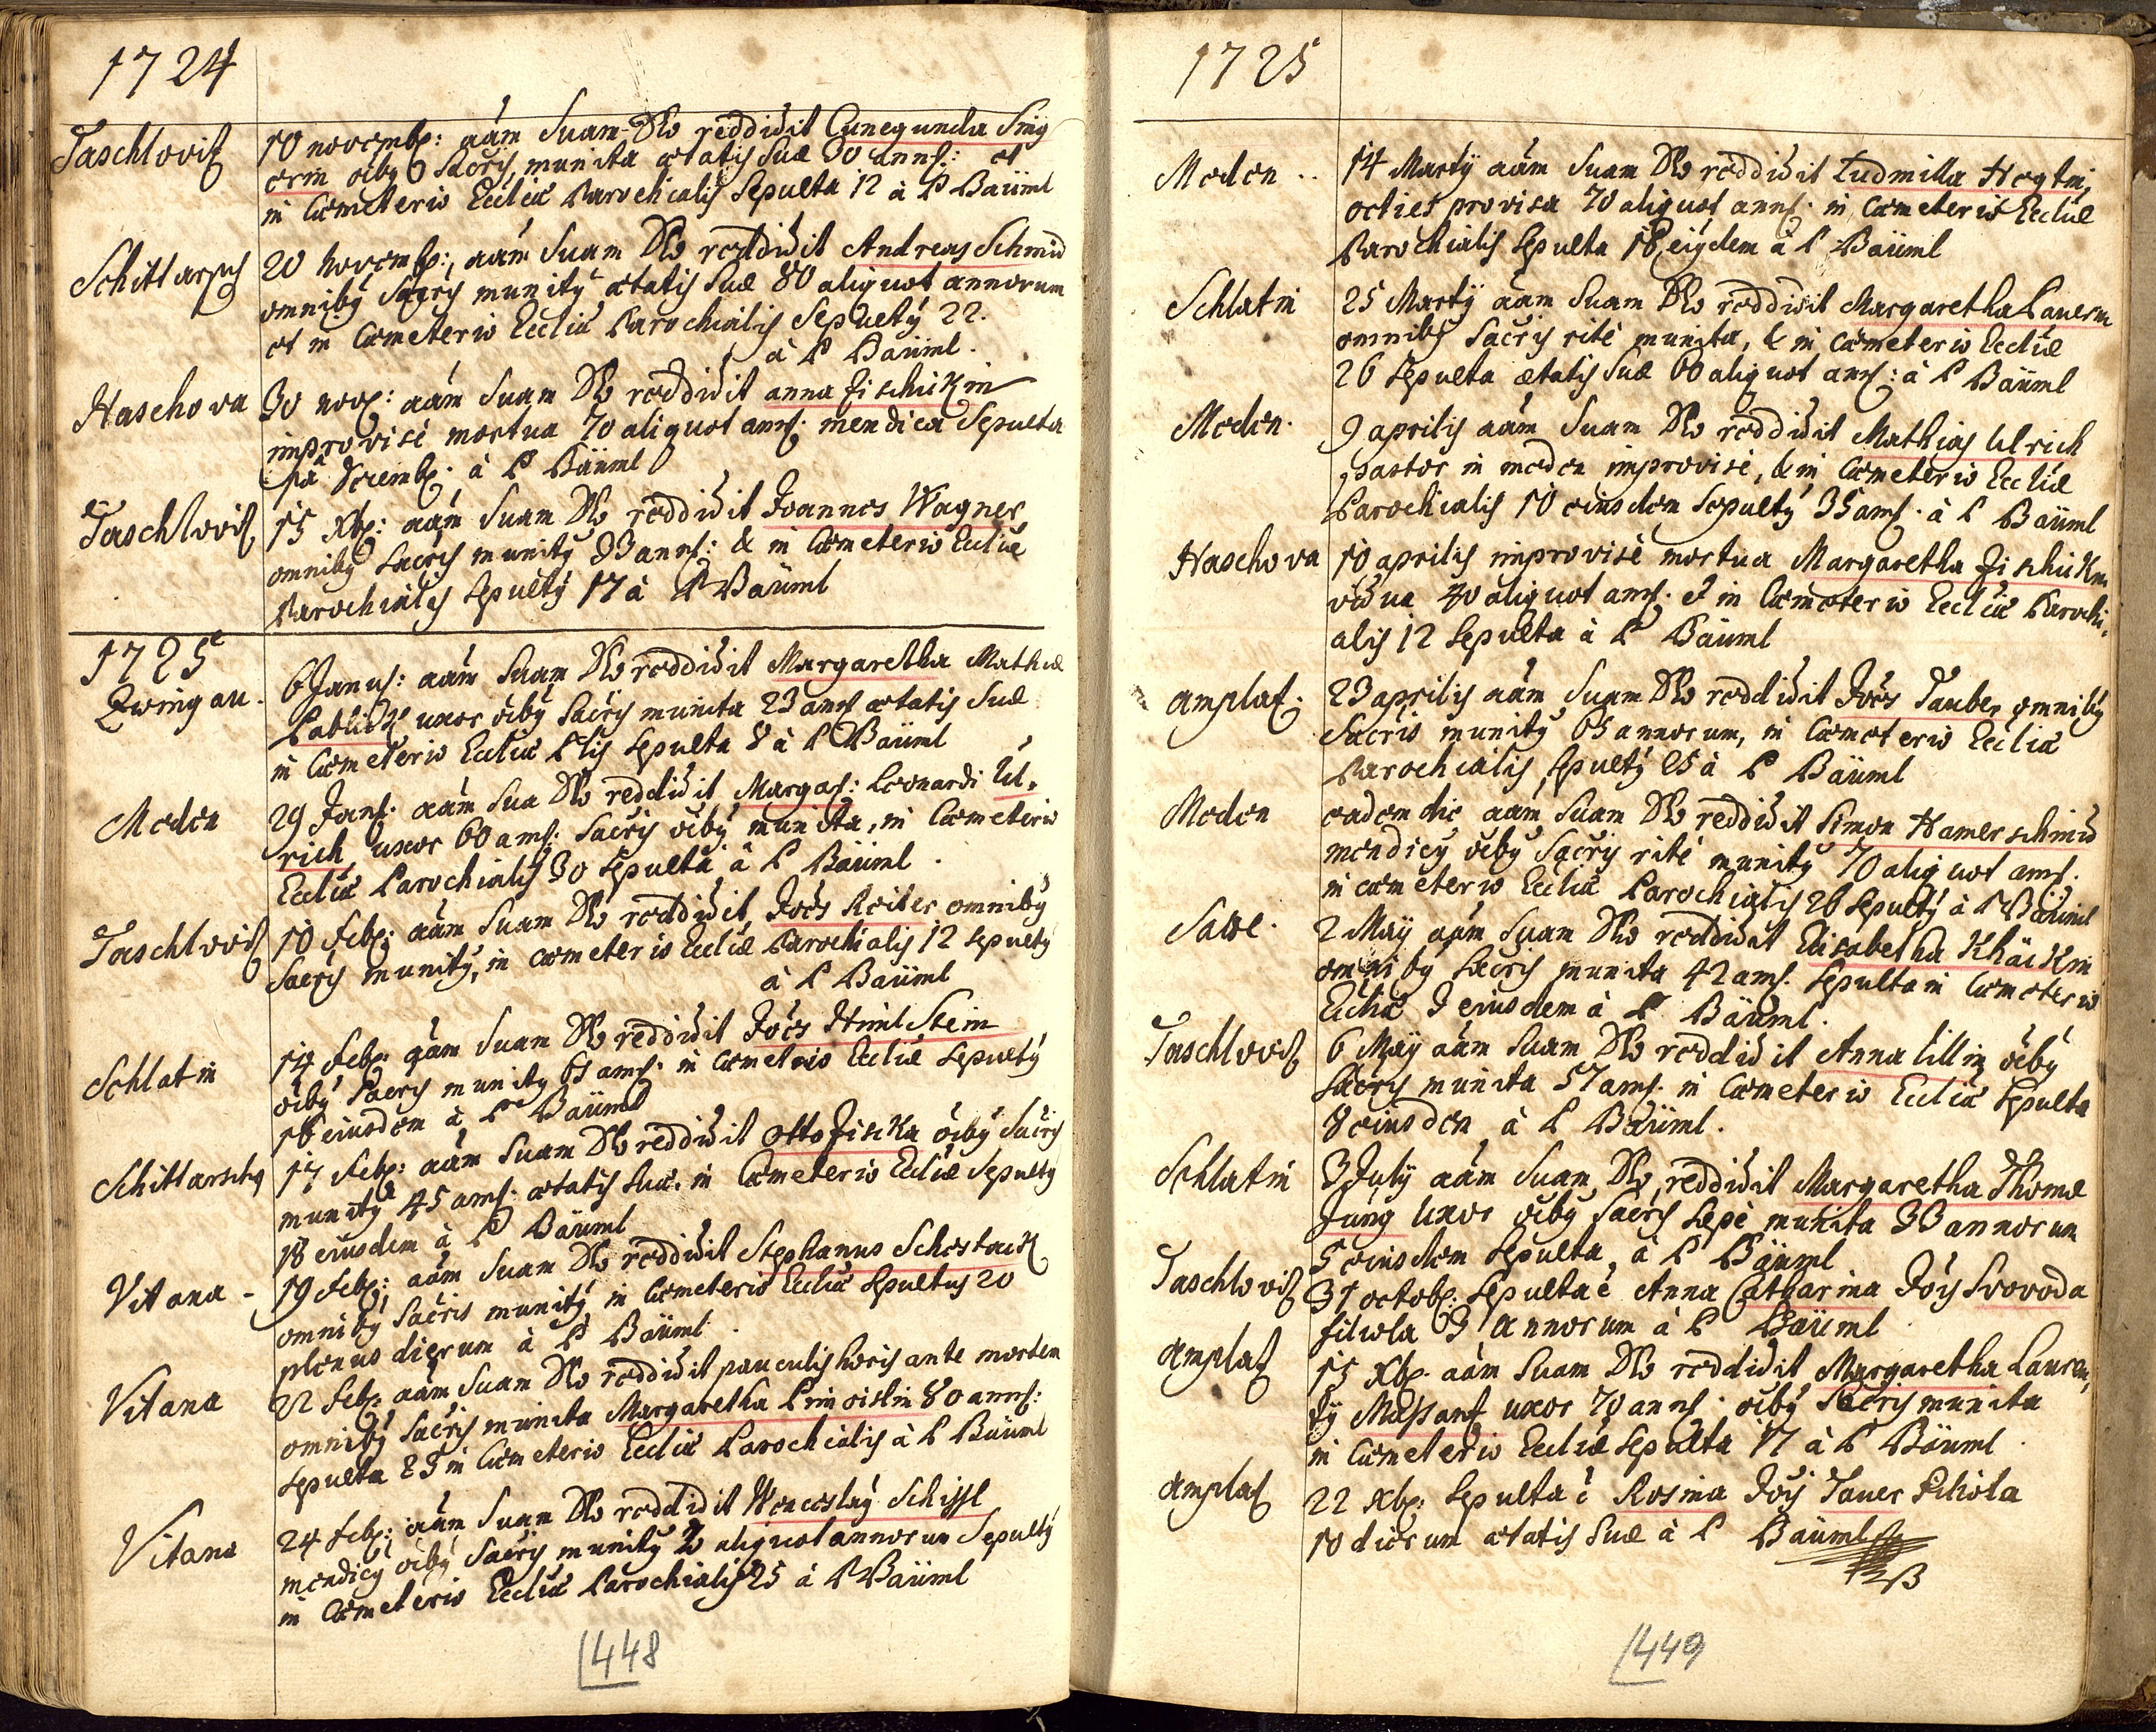 1724
Taschlovitz 10 novemb: aām Suam Dēo reddidit Cunegunda Sing
erin oībꝰ Sacris munita ætatis Suæ 30 annor: et
in Cœmeterio Eccliæ Parochialis Sepulta 12 à P Baüml
Schittarsch 20 Novemb: aām Suam Dēo reddidit Andreas Schmid
omnibꝰ Sacris munitꝰ ætatis Suæ 80 aliquot annorum
et in Cœmeterio Eccliæ Parochialis Sepultꝰ 22.
à P Baüml.
Haschova 30 nov: aām Suam Dēo reddidit anna Zischickin
improvisè mortua 70 aliquot ann: mendica Sepulta
1ma Decemb: à P Baüml
Taschlovitz 15 Xb: aām Suam Dēo reddidit Joannes Wagner
omnibꝰ Sacris munitꝰ 33 ann: & in Cœmeterio Eccliæ
Parochialis Sepultꝰ 17 à P Baüml
1725
Zwingau. 6 Janu: aām Suam Dēo reddidit Margaretha Mathiæ
Pablick uxor oībꝰ Sacris munita 23 ann ætatis Suæ
in Cœmeterio Eccliæ Plis Sepulta 8 à P Baüml
Meden 29 Jan: aām Sua Dēo reddidit Margar: Leonardi Ul,
rich, uxor 60 ann: Sacris oībꝰ munita, in Cœmeterio
Eccliæ Parochialis 30 Sepulta à P Baüml.
Taschlovitz 10 Feb: aām Suam Dēo reddidit Joēs Reiter omnibꝰ
Sacris munitꝰ, in cœmeterio Eccliæ Parochialis 12 sepultꝰ
à P Baüml
Schlatin 14 Feb: aām Suam Dēo reddidit Joēs HimlStein
oībꝰ Sacris munitꝰ 61 ann: in Cœmeterio Eccliæ Sepultꝰ
16 eiusdem à Pre Baüml
Schittarschꝰ 17 Feb: aām Suam Dēo reddidit Otto Zischka oībꝰ Sacris
munitꝰ 45 ann: ætatis Suæ. in Cœmeterio Eccliæ Sepultꝰ
18 eiusdem à P Baüml
Vitana - 19 Feb: aām Suam Dēo reddidit Stephanus Schostack
omnibꝰ Sacris munitꝰ in Cœmeterio Eccliæ Sepultus 20
plenus dierum à P Baüml.
Vitana 22 Feb: aām Suam Dēo reddidit pauculis horis ante mortem
omnibꝰ Sacris munita Margaretha 80 ann:
Sepulta 25 in Cœmeterio Eccliæ Parochialis à P Baüml
Vitana 24 Feb: aām Suam Dēo reddidit Wenceslaꝰ Schissl
mendicꝰ oībꝰ Sacris munitꝰ aliquot annorum Sepultꝰ
in Cœmeterio Eccliæ Parochialis 25 à P Baüml
448
1725
Meden.. 14 Martÿ aām Suam Dēo reddidit Ludmilla Hegtin,
octies provisa 70 aliquot ann: in Cœmeterio Eccliæ
Parochialis Sepulta 18 eiꝰdem à P Baüml
Schlatin 25 Martÿ aām Suam Dēo reddidit Margaretha Pauerin
omnibꝰ Sacris ritè munita, & in cœmeterio Eccliæ
26 Sepulta ætatis Suæ 60 aliquot ann: à P Baüml
Meden. 9 aprilis aām Suam Dēo reddidit Mathias Ulrich
pastor in meden improvisè, & in Cœmeterio Eccliæ
Parochialis 10 eiusdem Sepultꝰ 35 ann: à P Baüml
Haschova 10 aprilis improvisè mortua Margaretha Zischickin
vidua 70 aliquot ann: & in Cœmeterio Eccliæ Parochi,
alis 12 Sepulta à P Baüml
amplat: 23 aprilis aām Suam Dēo reddidit Joēs Tauber omnibꝰ
Sacris munitꝰ 63 annorum, in Cœmeterio Eccliæ
Parochialis Sepultꝰ 25 à P Baüml
Meden eadem die aām Suam Dēo reddidit Simon Hamerschmid
mendicꝰ oībꝰ Sacris ritè munitꝰ 70 aliquot ann:
in cœmeterio Eccliæ Parochialis 26 Sepultꝰ à P Baüml
2 Maÿ aām Suam Dēo reddidit Elisabetha Khäckin
omnibꝰ Sacris munita 42 ann: Sepulta in Cœmeterio
Eccliæ 3 eiusdem à P Baüml.
Taschlovitz 6 Maÿ aām Suam Dēo reddidit Anna Lillin oībꝰ
Sacris munita 57 ann: in Cœmeterio Eccliæ Sepulta
8 eiusdem à P Baüml.
Schlatin 3 Julÿ aām Suam Dēo reddidit Margaretha Thomæ
Jung Uxor oībꝰ Sacris sepè munita 33 annorum
5 eiusdem Sepulta à P Baüml
Taschlovitz 31 octob: Sepulta ē Anna Catharina Jois Svovoda
filiola 3 annorum à P Baüml
amplat 15 Xb: aām Suam Dēo reddidit Margaretha Lauren,
tÿ Massant uxor 70 ann: oībꝰ Sacris munita
in Cœmeterio Eccliæ Sepulta 17 à P Baüml.
amplat 22 Xb: Sepulta ē Rosina Jois Tauer Filiola
10 dierum ætatis Suæ à P Baüml
449